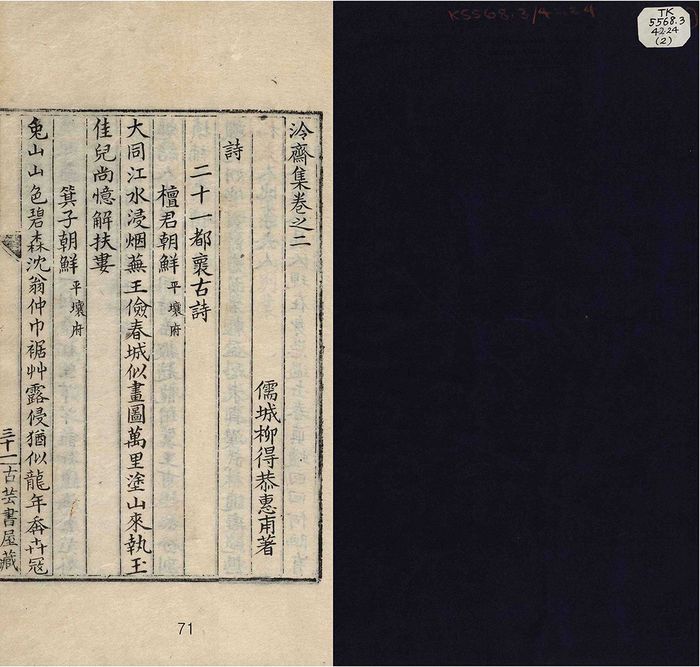 泠齋集卷之二
儒城柳得恭惠甫著
詩
二十一都褱古詩
檀君朝鮮 平壤府
大同江水浸烟蕪王儉春城似畫圖萬里塗山來執玉
佳兒尚憶解扶婁
箕子朝鮮 平壤府
兔山山色碧森沈翁仲巾裾艸露侵猶似龍年奔卉冦
古芸書屋藏
71
TK
5568.3
4224
(2)